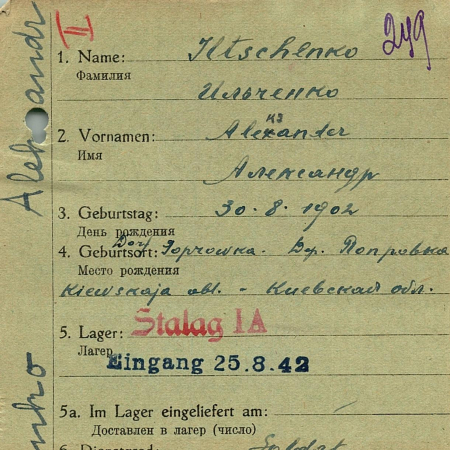 II
249
1. Name: Iltschenko
Фамилия
Ильченко
2. Vornamen: Alexander
ks
Имя
Александр
3. Geburtstag: 30.8.1902
День рождения
4. Geburtsort: Dorf
Место рождения
Kiewskaja obl. - Киевская обл.
5. Lager: Stalag IA
Лагер
Eingang 25.8.42
5a. Im Lager eingeliefert am:
Доставлен в лагер (число)
6. Dienstgrad: Soldat
Aleksandr